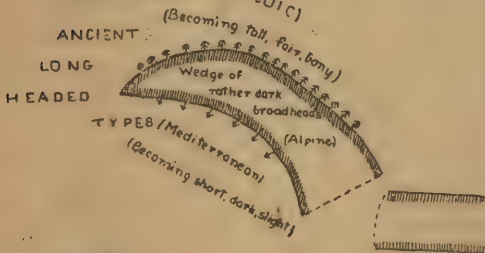 (Becoming tall, fair, bony)
ANCIENT
LONG
HEADED
Wedge of
rather dark
broadheads
(Alpine)
TYPES (Mediterranean)
(Becoming short, dark, slight)